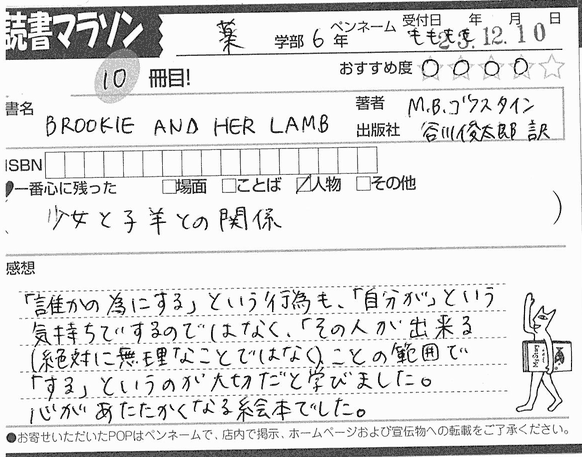 読書マラソン
薬 学部 6 年 ペンネーム ももきき 受付日 年 月 日
23.12.10
10 冊目! おすすめ度 ○○○○☆
書名 BROOKIE AND HER LAMB 著者 M.B.ゴフスタイン
出版社 谷川俊太郎 訳
ISBN
♥一番心に残った □場面 □ことば ☑人物 □その他
( 少女と子羊との関係 )
感想
「誰かの為にする」という行為も、「自分が」という
気持ちでするのではなく、「その人が出来る
(絶対に無理なことではなく)ことの範囲で
「する」というのが大切だと学びました。
心があたたかくなる絵本でした。
●お寄せいただいたPOPはペンネームで、店内で掲示、ホームページおよび宣伝物への転載をご了承ください。